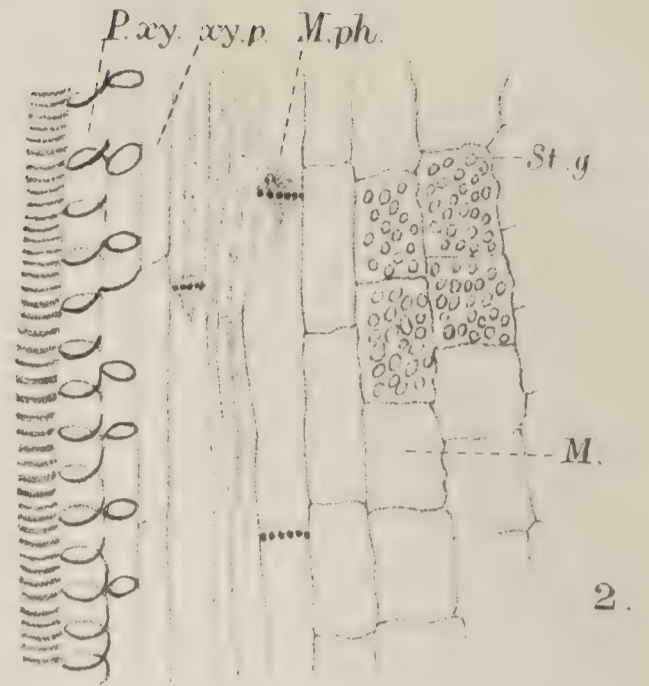 P.xy. xy.p. M.ph.
St.g.
M.
2.